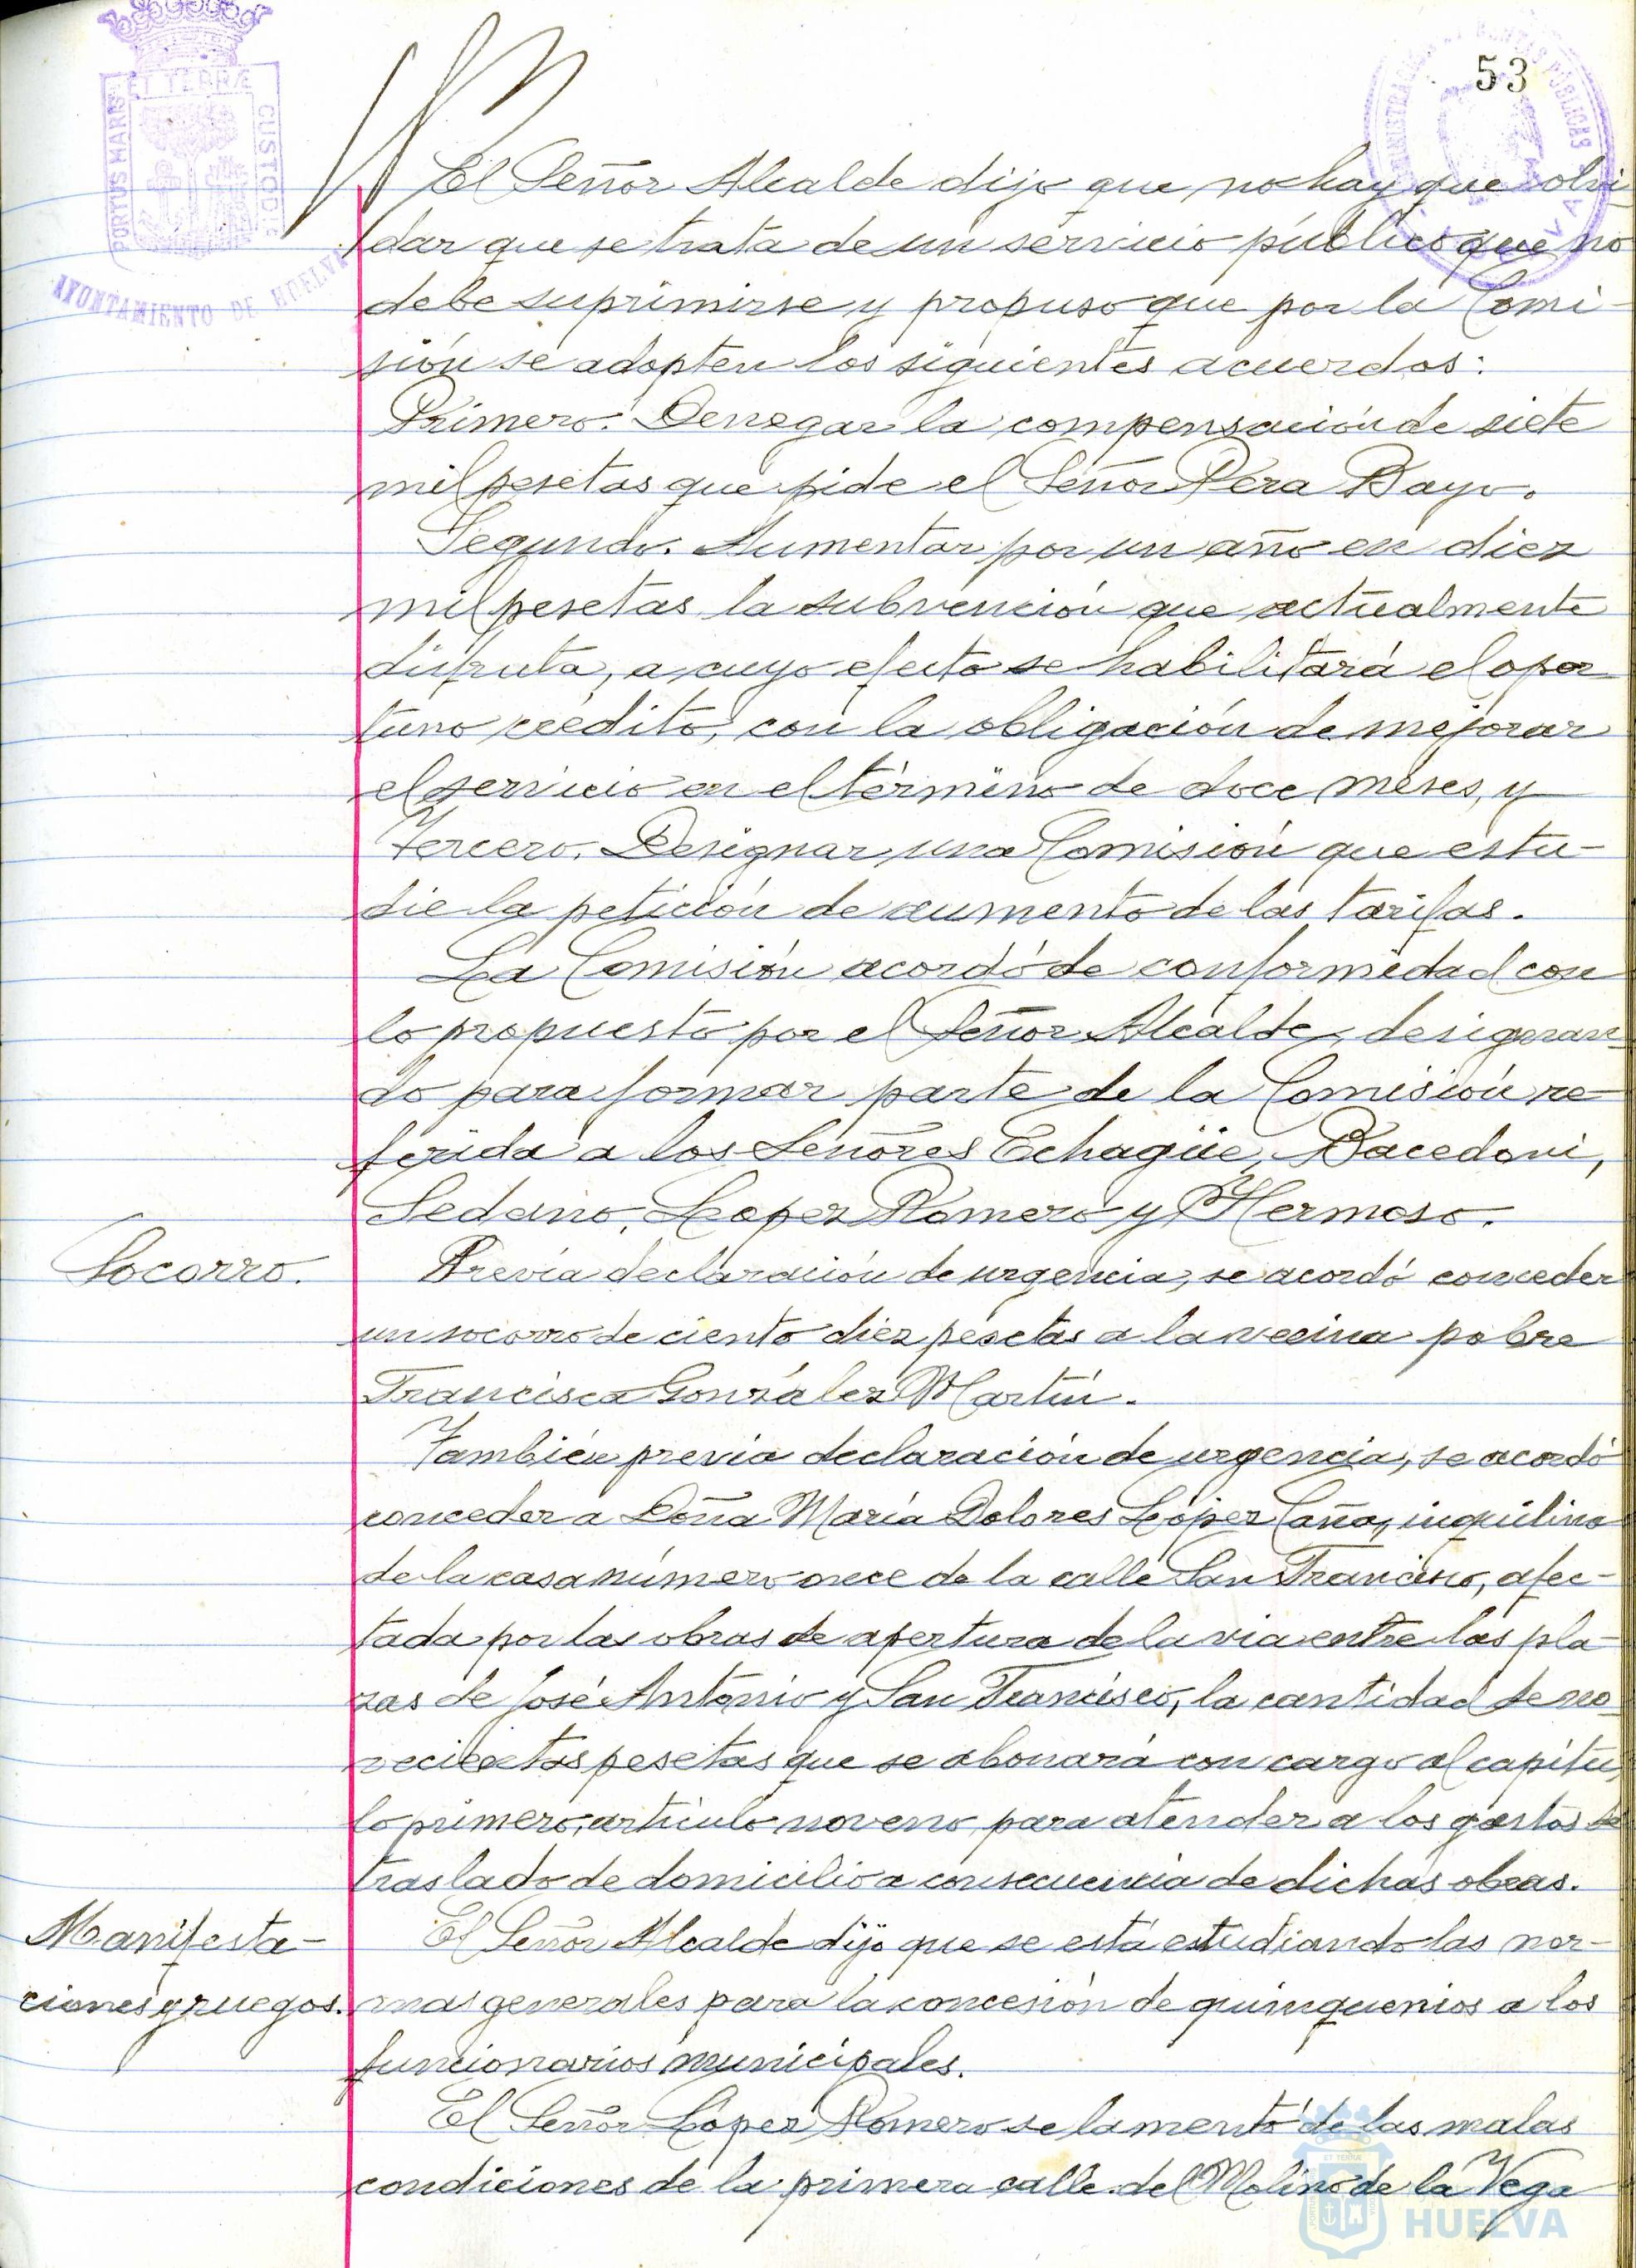 53
ET TERRÆ
PORTUS MARIS
CUSTODI
AYUNTAMIENTO DE HUELVA
El Señor Alcalde dijo que no hay que olvi-
dar que se trata de un servicio público que no
debe suprimirse y propuso que por la Comi-
sión se adopten los siguientes acuerdos:
Primero. Denegar la compensación de siete
mil pesetas que pide el Señor Pera Bayo.
Segundo. Aumentar por un año en diez
mil pesetas la subvención que actualmente
disfruta, a cuyo efecto se habilitará el opor-
tuno crédito, con la obligación de mejorar
el servicio en el término de doce meses, y
Tercero. Designar una Comisión que estu-
die la petición de aumento de las tarifas.
La Comisión acordó de conformidad con
lo propuesto por el Señor Alcalde, designan-
do para formar parte de la Comisión re-
ferida a los Señores Echagüe, Bacedoni,
Sedano, Lopez Romero y Hermoso.
Socorro.
Previa declaración de urgencia, se acordó conceder
un socorro de ciento diez pesetas a la vecina pobre
Francisca González Martín.
También previa declaración de urgencia, se acordó
conceder a Doña María Dolores López Caña, inquilina
de la casa número once de la calle San Francisco, afec-
tada por las obras de apertura de la via entre las pla-
zas de José Antonio y San Francisco, la cantidad de no-
vecientas pesetas que se abonará con cargo al capítu-
lo primero, artículo noveno, para atender a los gastos de
traslado de domicilio a consecuencia de dichas obras.
Manifesta-
ciones y ruegos.
El Señor Alcalde dijo que se está estudiando las nor-
mas generales para la concesión de quinquenios a los
funcionarios municipales.
El Señor López Romero se lamentó de las malas
condiciones de la primera calle del Molino de la Vega
HUELVA